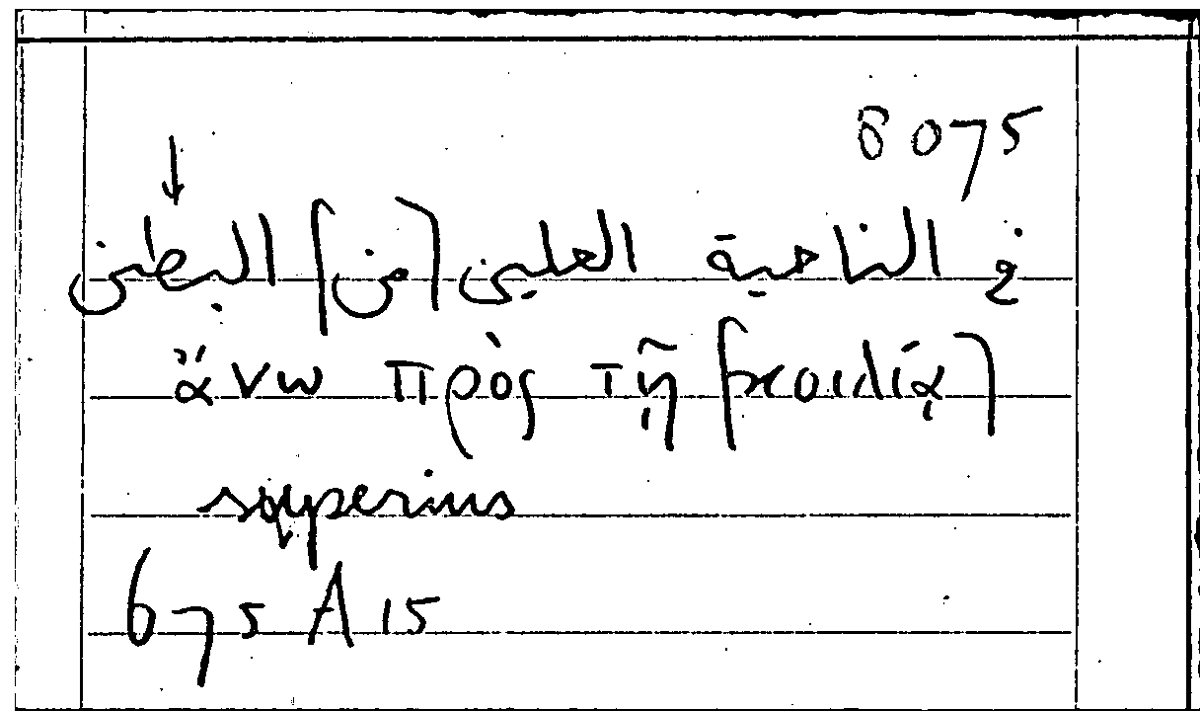 8075
↓
في الناحية العليى (من) البطن
ἄνω πρὸς τῇ [κοιλίᾳ]
superius
675 A 15